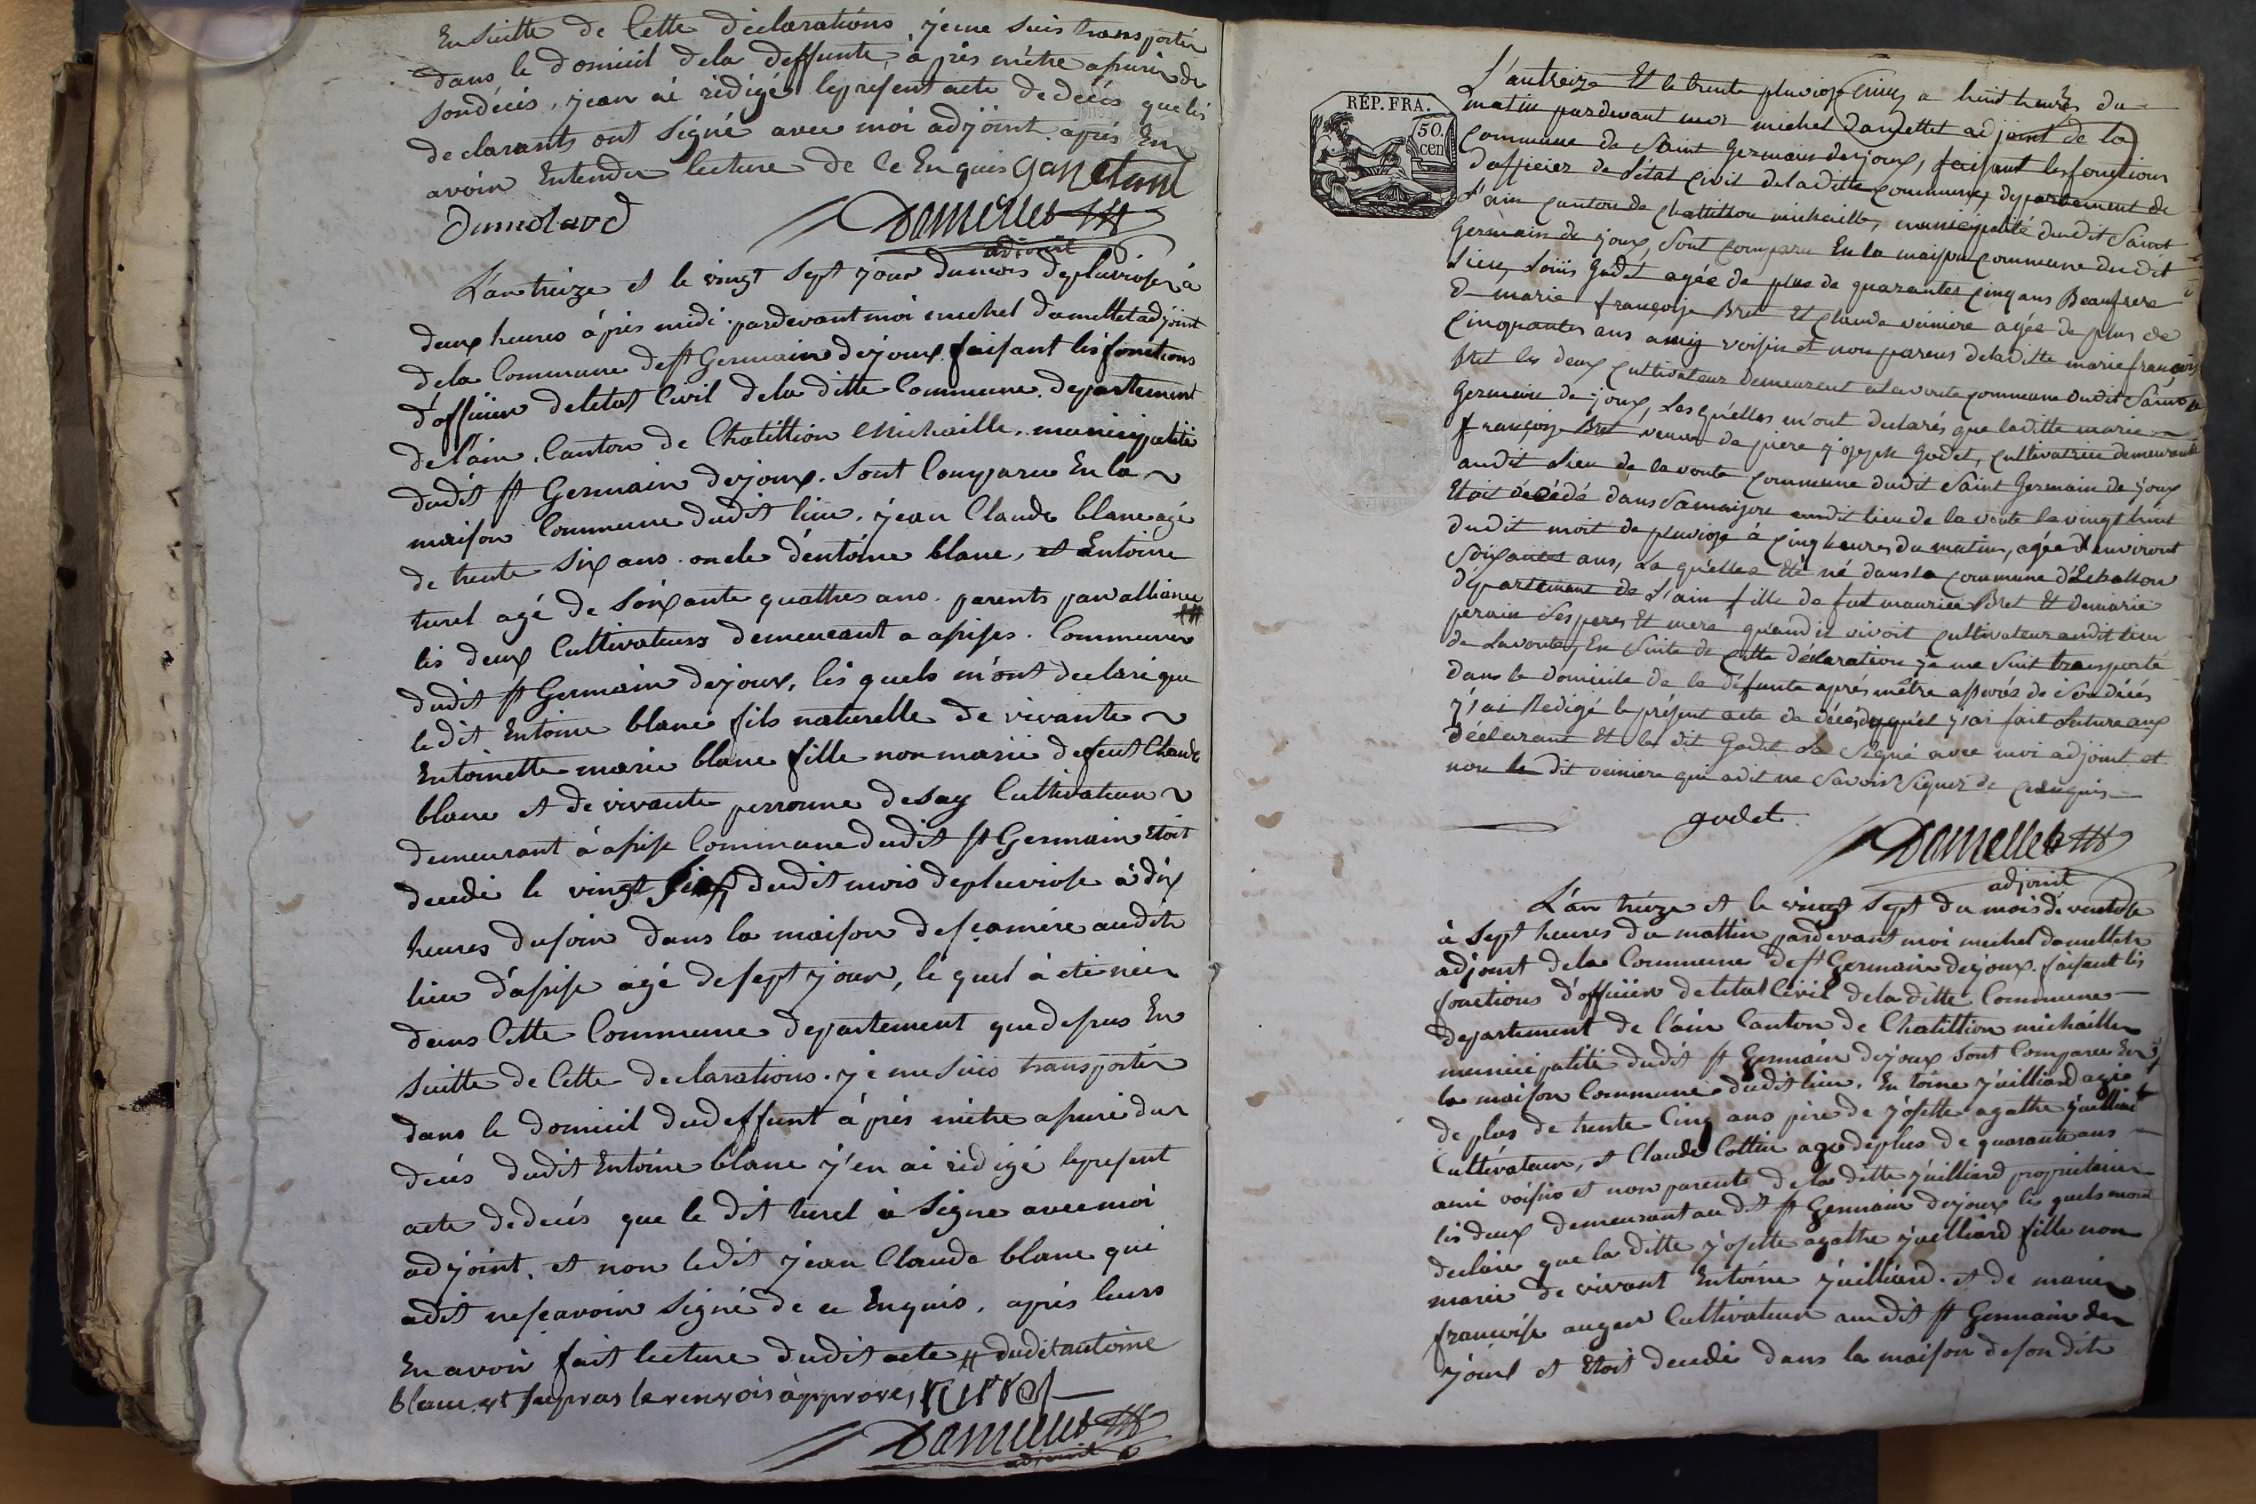 En suitte de Cette déclarations, jeme suis transportér
dans le domicil dela deffunte, àprès mêtre assurér de
son décès, jean ai rédigé le présent acte de décès que les
declarants ont Signé avec moi adjoint après En
avoir Entendu lecture de ce Enquis
Dumolard
Damellet
adjoint
L'an treize et le vingt sept jour du mois de pluviose à
deux heures après midi pardevant moi michel damellet adjoint
dela Commune de st Germain dejoux faisant les fonctions
d'officier deletat Civil dela ditte Commune departement
de l'ain. Canton de Chatillion Michaille, municipalité
dudit st Germain dejoux. Sont Comparu En la
maison Commune dudit lieu. jean Claude blanc agé
de trente Six ans. oncle d'entoine blanc, et Entoine
turel agé de Soixante quattres ans. parents par alliance #
les deux Cultivateurs demeurant a assises. Commune
dudit st Germain dejoux, les quels m'ont declaré que
le dit Entoine blanc fils naturelle de vivante
Entoinette marie blanc fille non marié defeut Claude
blanc et de vivante perronne de say Cultivateur
demeurant à assise Commune dudit st Germain Etoit
decedé le vingt Six dudit mois de pluviose à dix
heures du soir dans la maison de sa mère audit
lieu d'assise agé de sept jour, le quel à eté née
dans Cette Commune departement que dessus En
Suitte de Cette declarations. je me suis transportér
dans le domicil dudeffunt àprès mêtre assuré du
décès dudit Entoine blanc j'en ai rédigé le présent
acte de decés que le dit turel à Signe avec moi
adjoint, et non ledit jean Claude blanc qui
adit ne scavoir Signé de ce Enquis, après leurs
En avoir fait lecture dudit acte # dudit antoine
blanc et le renvois àpprové, turel
Damellet
adjoint
REP. FRA.
50.
cen
L'an treize Et le trente pluviose Cinq a huit heures du
matin pardevant moi michel Damellet adjoint de la
Commune de Saint Germain dejoux, faisant les fonctions
d'officier de l'état Civil deladitte commune, departement de
l'ain canton de Chattillon michaille, municipalité dudit Saint
Germain de joux, Sont comparu En la maison commune dudit
lieu, Louis Godet agée de plus de quarantes cinq ans Beaufrere
D marie françoise Bret Et Claude veiniere agée de plus de
Cinquantes ans amy voisin et non parens deladitte marie françoise
Bret les deux cultivateur demeurent a la voute commune dudit Saint
Germain de joux, Les quelles m'ont declarés que laditte marie
françoise Bret veuve de joseph Godet, cultivatrice demeurante
audit lieu de la voute commune dudit Saint Germain de joux
Etoit décédé dans Samaison audit lieu de la voute le vingt huit
dudit mois de pluviose à cinq heures du matin, agée d'environt
Soixantes ans, La quelles Eté né dans la commune d'Echallon
departement de l'ain fille de fut maurice Bret Et de marie
perain Ses peres Et mere quand il vivoit cultivateur audit lieu
de Lavoute, En Suite de cette déclaration je me Suit transporté
dans le domicile de la défunte aprés mêtre assurés de Son décés
j'ai Redigé le présent acte de décés duquel j'ai fait Lecture aux
déclarant Et le dit Godet La Signé avec moi adjoint et
non le dit veiniere qui adit ne Savoir Signer de ce enquis
godet
Damellet
adjoint
L'an treize et le vingt Sept du mois de ventose
à Sept heures du mattin pardevant moi michel damellet
adjoint dela Commune de st Germain dejoux. faisant les
fonctions d'officier deletat Civil dela ditte Commune
departement de l'ain Canton de Chatillion michaille
municipalité dudit st Germain dejoux Sont Comparu En
la maison Commune dudit lieu. Entoine juilliard agé
de plus de trente Cinq ans père de josette agathe juilliard
Cultivateur, et Claude Cottin agé de plus de quarante ans
ami voisin et non parente de la ditte juilliard proprietaire
les deux demeurant au dit st Germain dejoux les quels mont
declaré que la ditte josette agathe juilliard fille non
marié de vivant Entoine juilliard. et de marie
françoise auger Cultivateur audit st Germain de
joux et Etoit decedé dans la maison de son dit